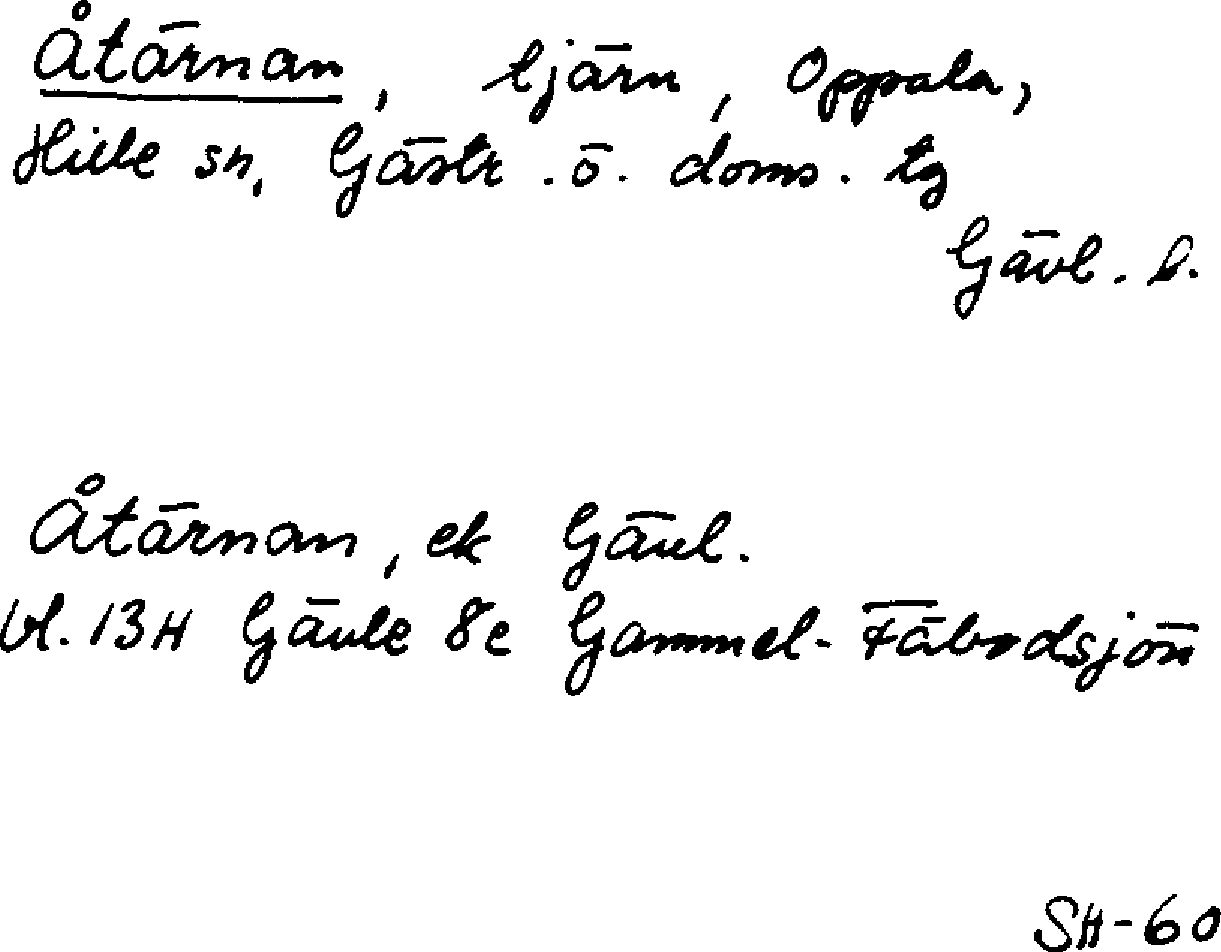 Åtärnan, tjärn, Oppala,
Hille sn, Gästr. ö. doms. tg
Gävl. l.
Åtärnan, ek Gävl.
bl. 13H Gävle 8e Gammel-Fäbodsjön
SH-60